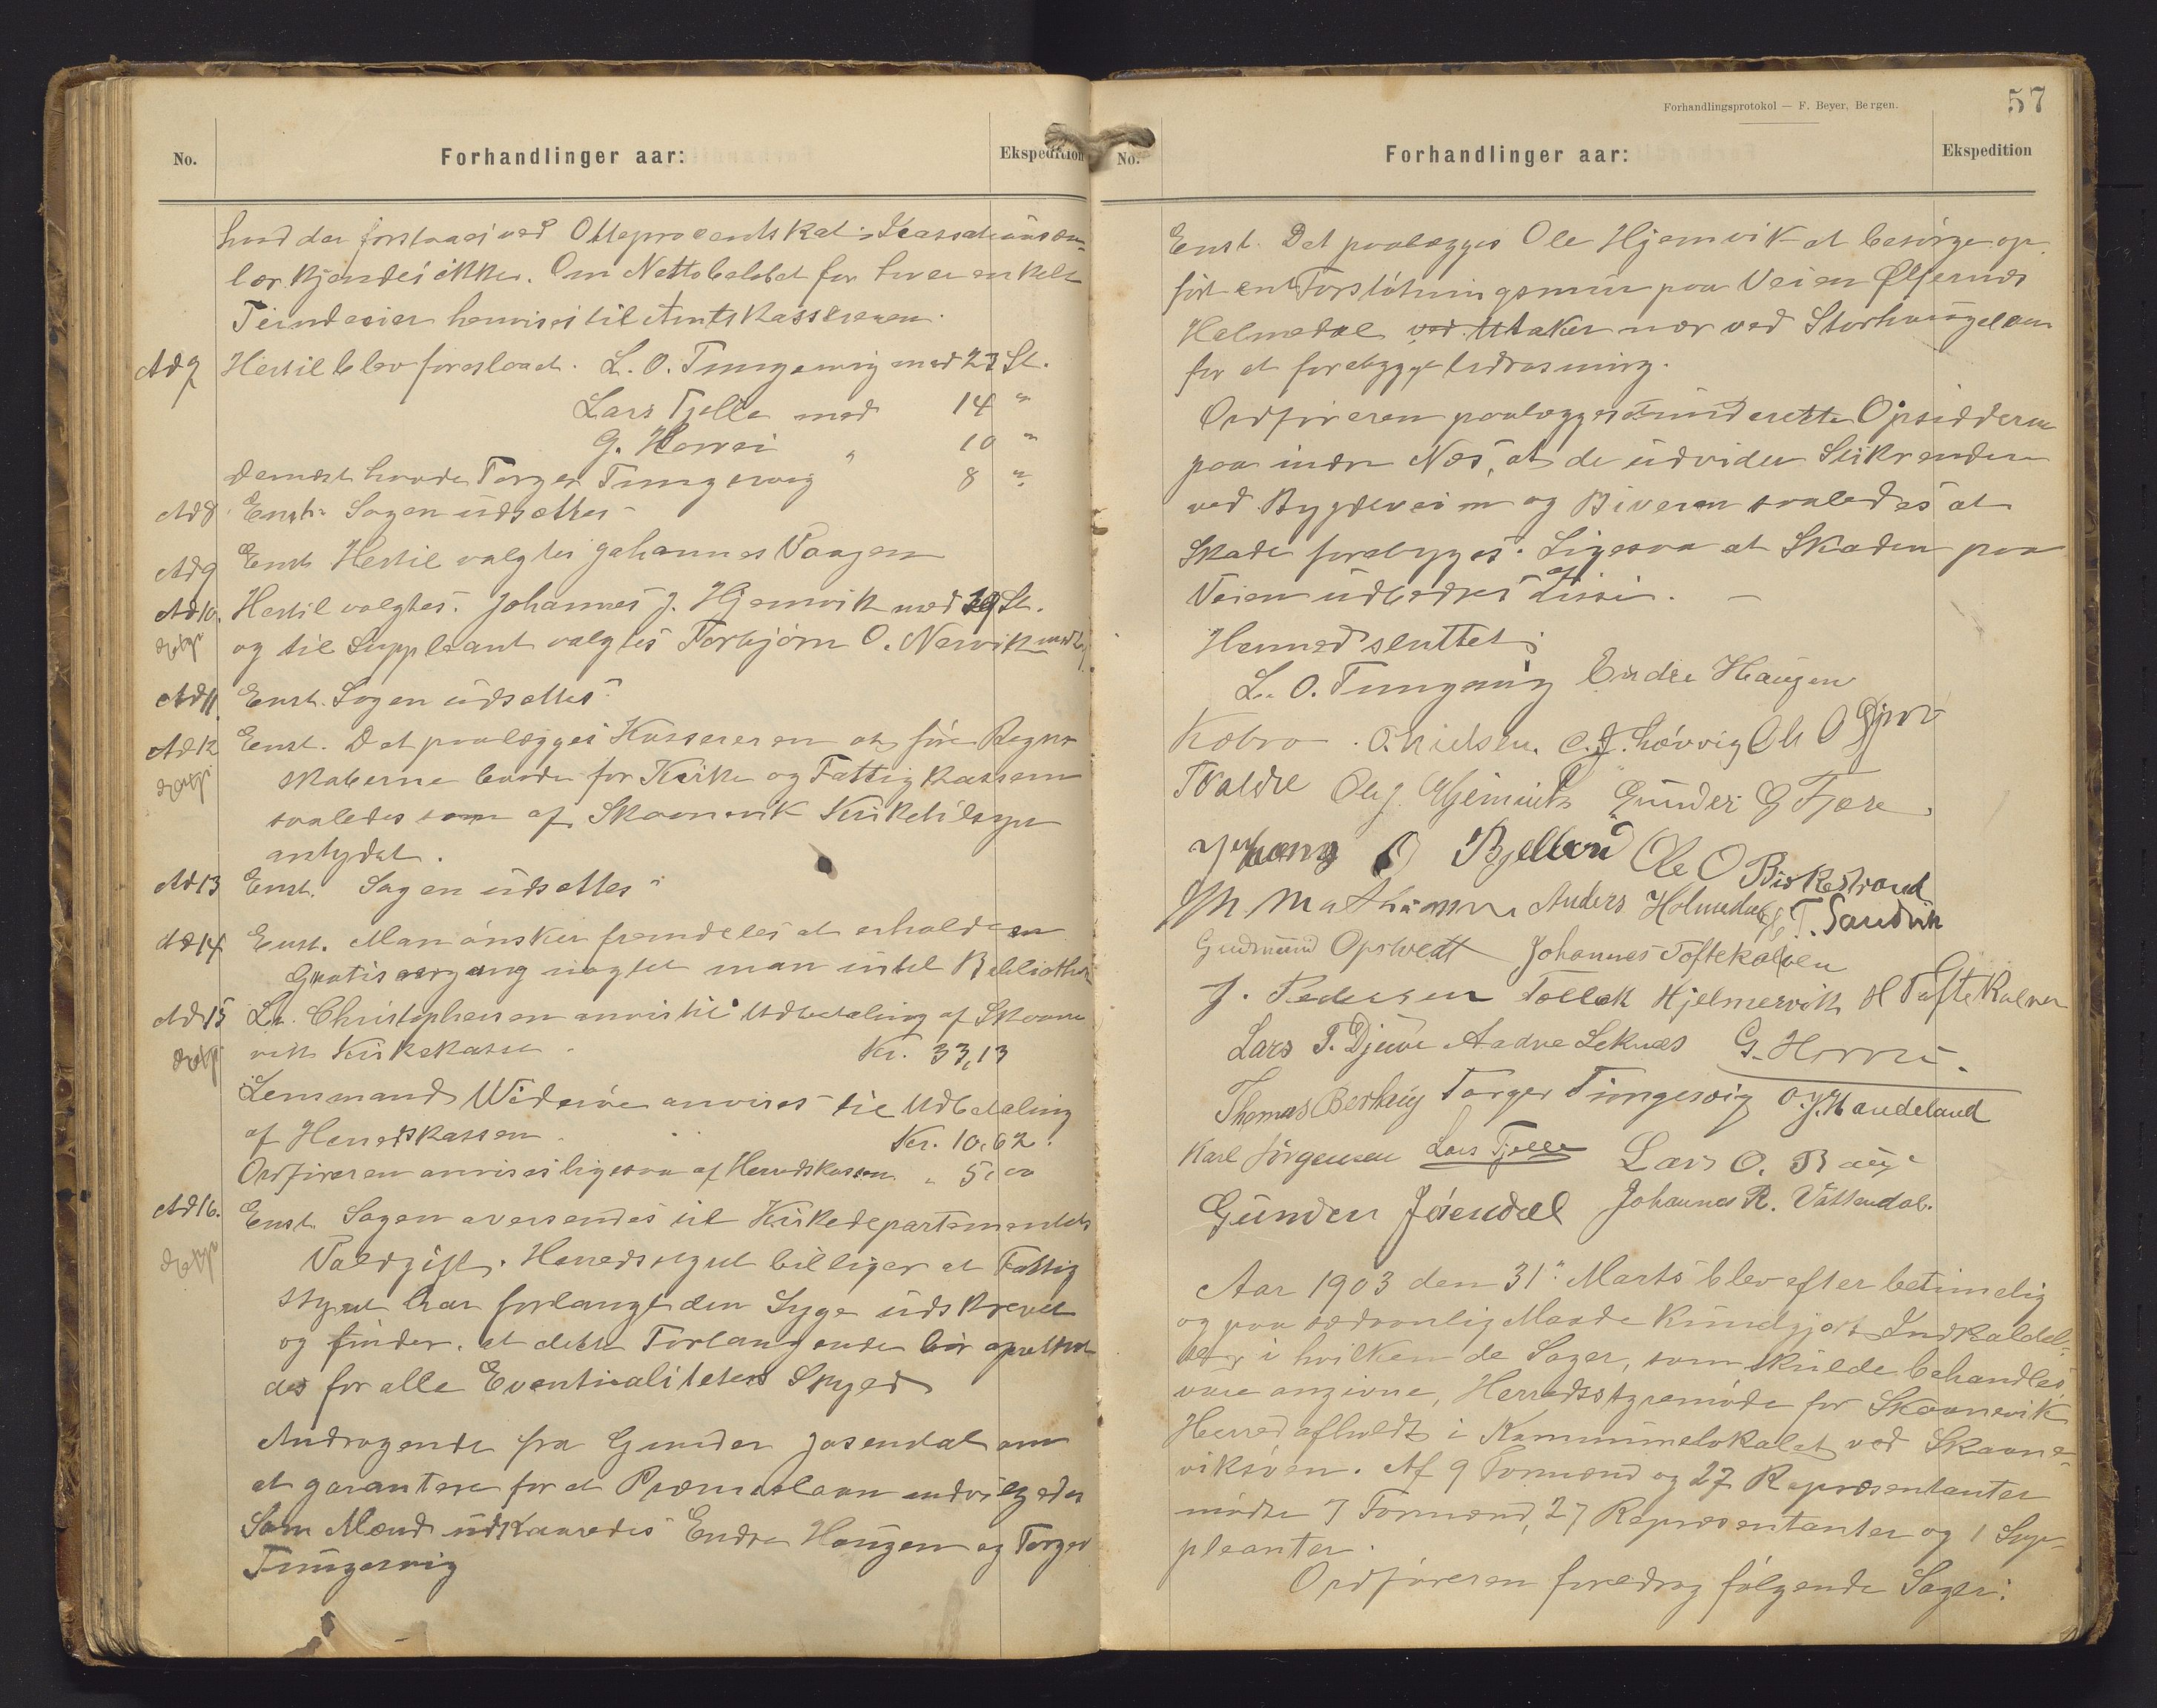 No.
Forhandlinger aar:
Ekspedition
hvad der forstaaes ved Otteprocentskat
kjendes ikke. Om Nettobeløbet for hver enkelt
henvises til Amtskassereren.
Ad 7 Hertil blev foreslaaet. L. O. Tungesvig med 23 St.
Lars Fjelle med 14 "
G. Horrei " 10 "
dernæst havde Torger Tungesvig 8 "
Ad 8 Enst. Sagen udsættes
Ad 9 Enst. Hertil valgtes Johannes Vaagen
Ad 10. Hertil valgtes. Johannes J. Hjemvik med 19 St.
og til Suppleant valgtes Torbjørn O. Nervik med
Ad 11. Enst. Sagen udsættes.
Ad 12 Enst. Det paalægges Kassereren at føre Regn-
skaberne baade for Kirke og Fattigkassen
saaledes som af Skaanevik Kirketilsyn
antydet.
Ad 13 Enst. Sagen udsættes
Ad 14 Enst. Man ønsker fremdeles at erholde en
Gratisargang man intet
Ad 15 Ln. Christophersen anvistil Udbetaling af Skaane
vik Kirkekasse. Kr. 33,13
Lensmand Widerøe anvises til Udbetaling
af Herredskassen. Kr. 10,62.
Ordføreren anvises ligesaa af Herredskassen. " 5,00
Ad 16. Enst. Sagen oversendes til Kirkedepartementets
Voldgift. Herredsstyret billiger at Fattig
styret har forlangt den Syge udskrevet
og finder, at dette Forlangende bør oprethol-
des for alle Eventualiteters Skyld
Andragende fra Gunder Josendal om
at garantere for et Præmielaan indvilgedes
Som Mænd udkaaredes Endre Haugen og Torger
Tungesvig
Forhandlingsprotokol — F. Beyer, Bergen.
57
No.
Forhandlinger aar:
Ekspedition
Enst. Det paalægges Ole Hjemvik at besørge op-
ført en Forstøtningsmur paa Veien Ølfernes
Helmedal ved Utaker nær ved Storhaugelen
for at forebygge Udrasning.
Ordføreren paalægges at underrette Opsidderne
paa indre Næs, at de udvider Stikrenden
ved Bygdeveien og Biveien saaledes at
Skade forebygges. Ligesaa at Skaden paa
Veien udbedres af disse. —
Hermed sluttet
L. O. Tungesvig Endre Haugen
Kobro. O. Nielsen. C. J. Løvvig Ole O Gjerv
T Valdre Ole J. Hjemvik Gunder G Fjære.
Johannes O Bjelland Ole O Birkestrand
M. Mathiassen Anders Holmedal T. Sandvik
Gudmund Opstvedt Johannes Toftekalven
J. Pedersen Tollek Hjelmervik H Toftekalven
Lars T. Djuve Aadne Leknes G. Horrei.
Thomas Berhaug Torger Tungesvig O. J. Handeland
Karl Jørgensen Lars Fjelle Lars O. Bauge
Gunder Jøsendal Johannes R. Vattendal.
Aar 1903 den 31". Marts blev efter betimelig
og paa sedvanlig Maade kundgjort Indkaldel-
ser, i hvilken de Sager, som skulde behandles,
vare angivne, Herredsstyremøde for Skaanevik
Herred afholdt i Kommunelokalet ved Skaane-
viksøen. Af 9 Formænd og 27 Repræsentanter
mødte 7 Formænd, 27 Repræsentanter og 1 Sup-
pleanter.
Ordføreren foredrog følgende Sager: